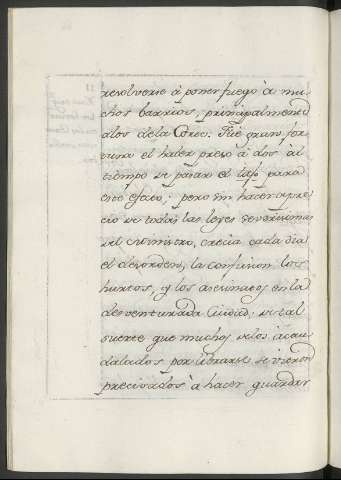 resolverse à poner fuego à mu
chos barrios, principalmente
alos dela Corte. Fué gran for
tuna el haber preso à dos àl
tiempo de pasar el tajo para
este efecto; pero sin hacer apre
cio de todas las leyes severisimas
del ministro, crecia cada dia
el desorden, la confusion los
hurtos, y los asesinatos en la
desventurada Ciudad; de tal
suerte que muchos delos àcau
dalados por librarse se vieron
precisados à hacer guardar